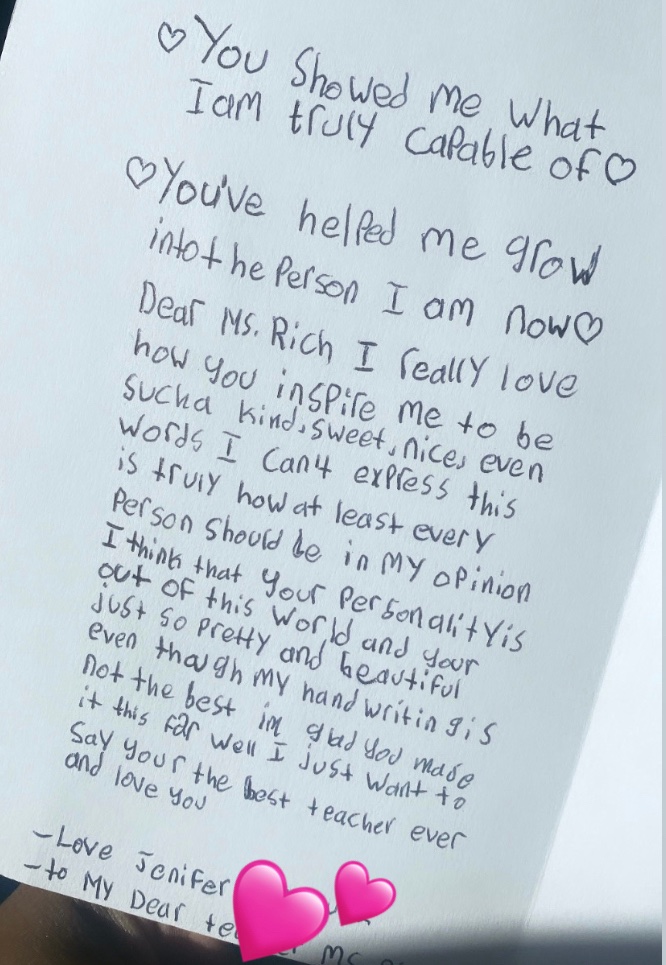 ♡You Showed me what
I am truly capable of♡
♡You've helped me grow
into the Person I am now♡
Dear Ms. Rich I really love
how you inspire me to be
sucha kind, sweet, nice, even
words I can4 express this
is truly how at least every
Person should be in my opinion
I think that your Personality is
out of this world and your
just so pretty and beautiful
even though my handwriting is
not the best im glad you made
it this far well I just want to
Say your the best teacher ever
and love you
-Love Jenifer
-to My Dear
Ms